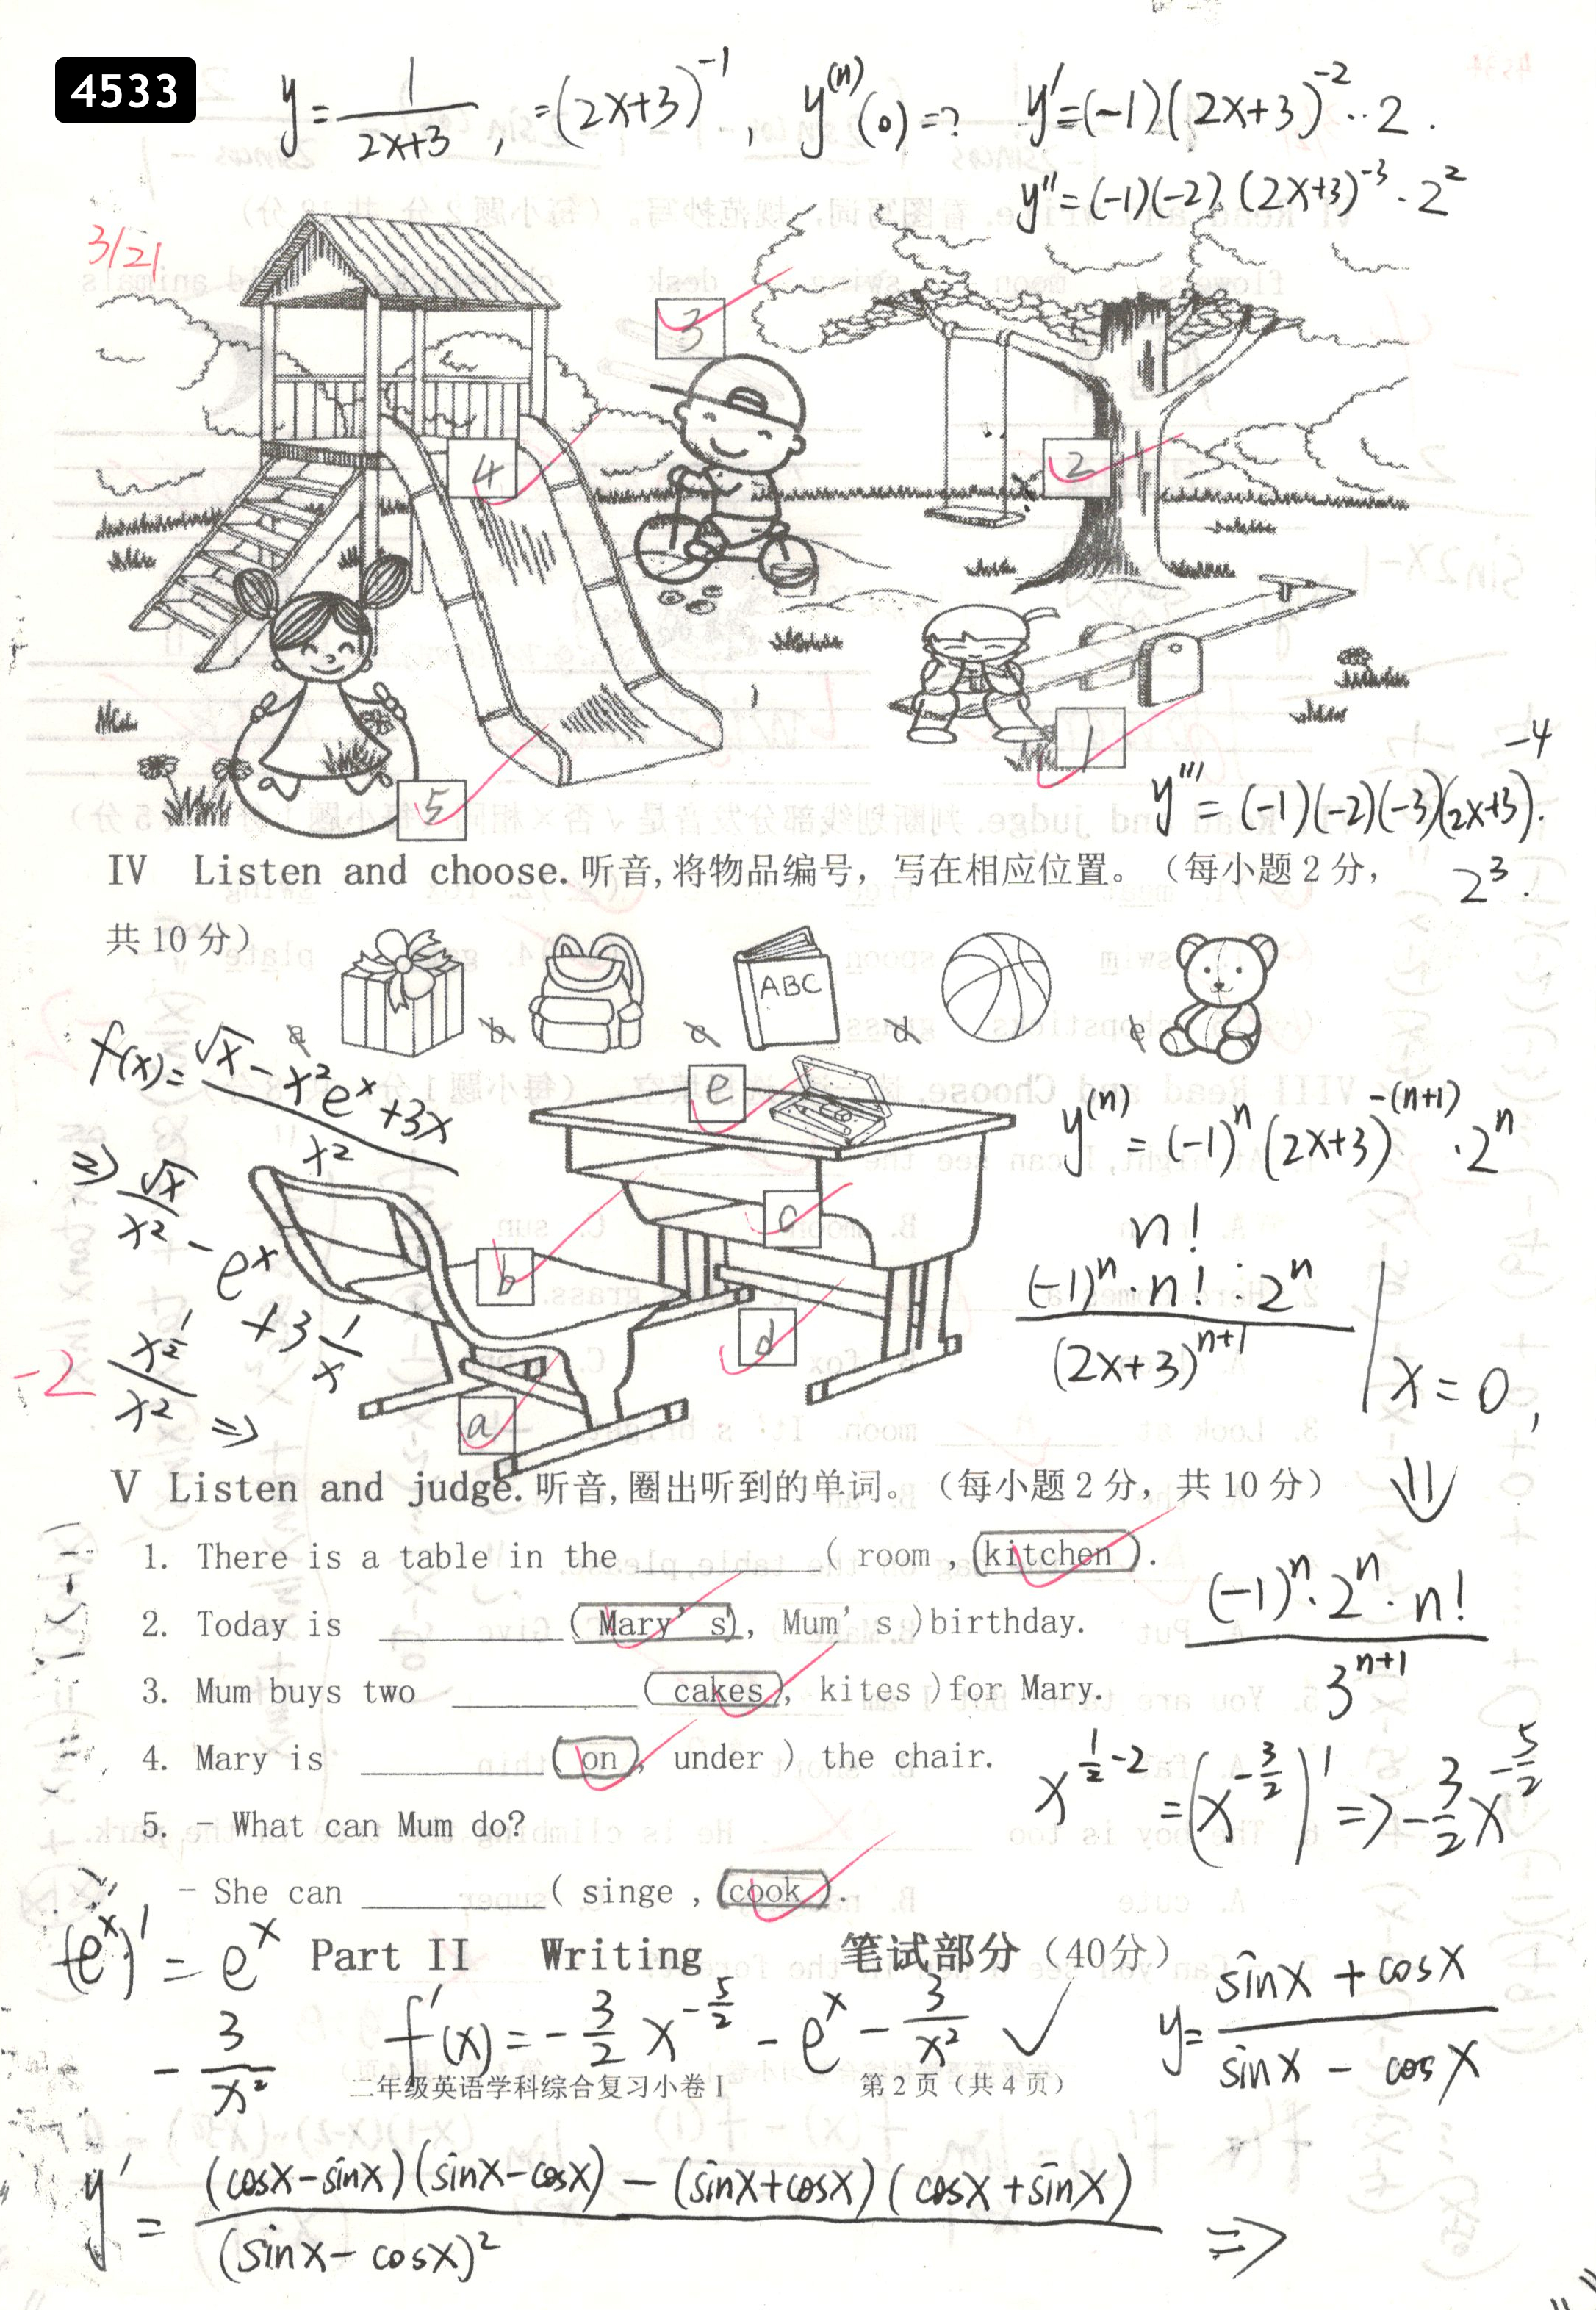 4533
y = 1/(2x+3), = (2x+3)^-1, y^(n)(0) = ? y' = (-1)(2x+3)^-2 · 2.
y'' = (-1)(-2)(2x+3)^-3 · 2^2
3/21
3
4
2
1
5
y''' = (-1)(-2)(-3)(2x+3)^-4 ·
2^3.
IV Listen and choose. 听音,将物品编号，写在相应位置。（每小题2分，
共10分）
a b c ABC d e
f(x) = (√x - x^2 e^x + 3x)/x^2
⇒ √x/x^2 - e^x + 3 1/x
x^(1/2)/x^2 ⇒
-2
e
c
b
d
a
y^(n) = (-1)^n (2x+3)^-(n+1) · 2^n
n!
(-1)^n · n! · 2^n/(2x+3)^(n+1) | x = 0,
⇓
V Listen and judge. 听音,圈出听到的单词。（每小题2分，共10分）
1. There is a table in the __________( room , kitchen ).
2. Today is __________( Mary's , Mum's )birthday.
3. Mum buys two __________( cakes , kites )for Mary.
4. Mary is __________( on , under ) the chair.
5. - What can Mum do?
- She can __________( singe , cook ).
(-1)^n · 2^n · n!/3^(n+1)
x^(1/2-2) = (x^(-3/2))' => -3/2 x^(-5/2)
(e^x)' = e^x
Part II Writing 笔试部分（40分）
-3/x^2
f'(x) = -3/2 x^(-5/2) - e^x - 3/x^2 ✓
y = (sinx + cosx)/(sinx - cosx)
二年级英语学科综合复习小卷I 第2页（共4页）
y' = ((cosx-sinx)(sinx-cosx) - (sinx+cosx)(cosx+sinx))/(sinx-cosx)^2 ⇒